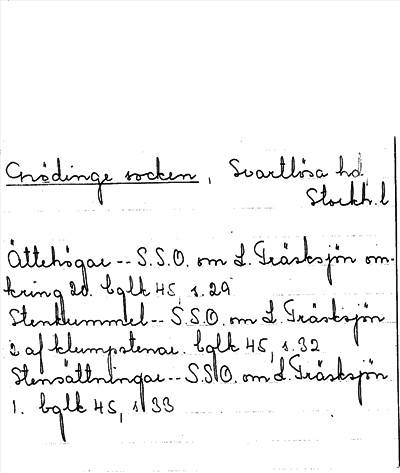 Grödinge socken, Svartlösa hd
Stockh. l
Ättehögar -- S.S.O. om L. Träsksjön om-
kring 20. bglk 45, s. 29
Stenkummel -- S.S.O. om L. Träsksjön
2 af klumpstenar. bglk 45, s. 32
Stensättningar -- S.S.O. om L. Träsksjön
1. bglk 45, s. 33